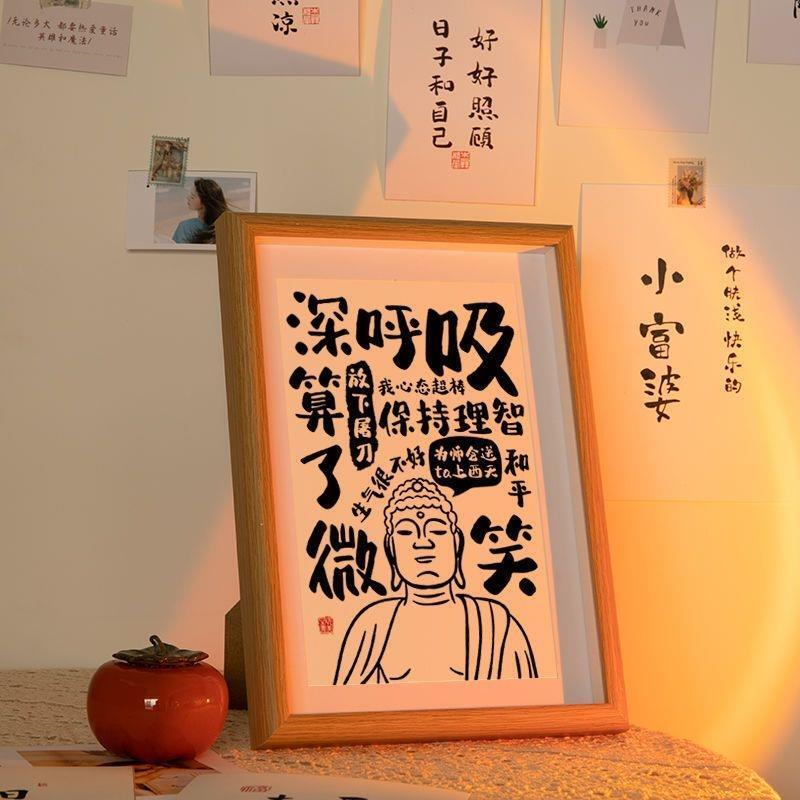 无论多大 都要热爱童话
英雄和魔法!
凉
好好照顾
日子和自己
THANK
YOU
小富婆
做个肤浅 快乐的
深呼吸
算了
放下屠刀
我心态超棒
保持理智
生气很不好
为师会送
ta上西天
和平
微笑